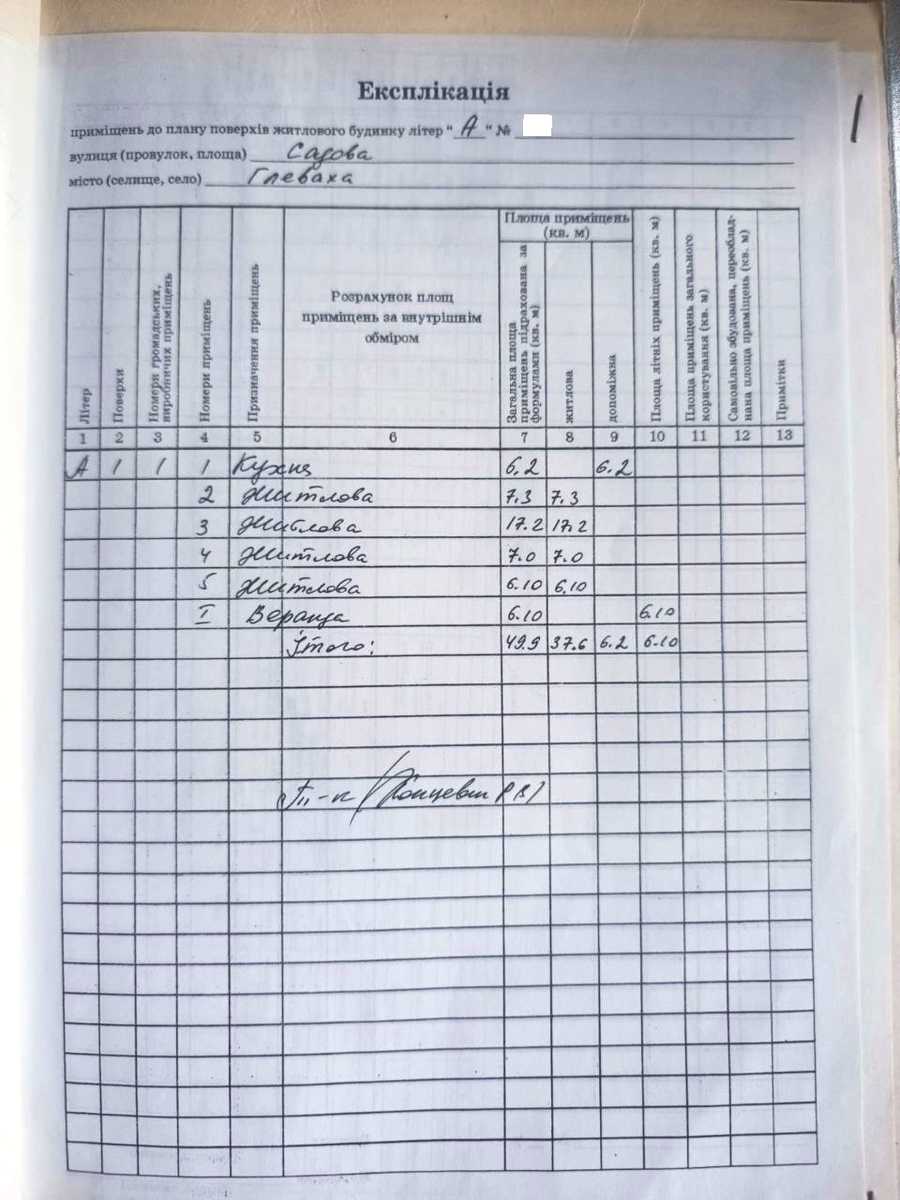 1
Експлікація
приміщень до плану поверхів житлового будинку літер " А " №
вулиця (провулок, площа) Садова
місто (селище, село) Глеваха
Літер
Поверхи
Номери громадських, виробничих приміщень
Номери приміщень
Призначення приміщень
Розрахунок площ приміщень за внутрішнім обміром
Площа приміщень (кв. м)
Загальна площа приміщень підрахована за формулами (кв. м)
житлова
допоміжна
Площа літніх приміщень (кв. м)
Площа приміщень загального користування (кв. м)
Самовільно збудована, переобладнана площа приміщень (кв. м)
Примітки
1 2 3 4 5 6 7 8 9 10 11 12 13
А 1 1 1 Кухня 6.2 6.2
2 Житлова 7.3 7.3
3 Житлова 17.2 17.2
4 Житлова 7.0 7.0
5 Житлова 6.10 6.10
I Веранда 6.10 6.10
Ітого: 49.9 37.6 6.2 6.10